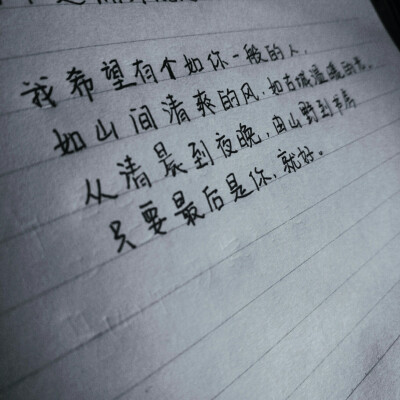 我希望有个如你一般的人，
如山间清爽的风，如古城温暖的光，
从清晨到夜晚，由山野到书房
只要最后是你，就好。